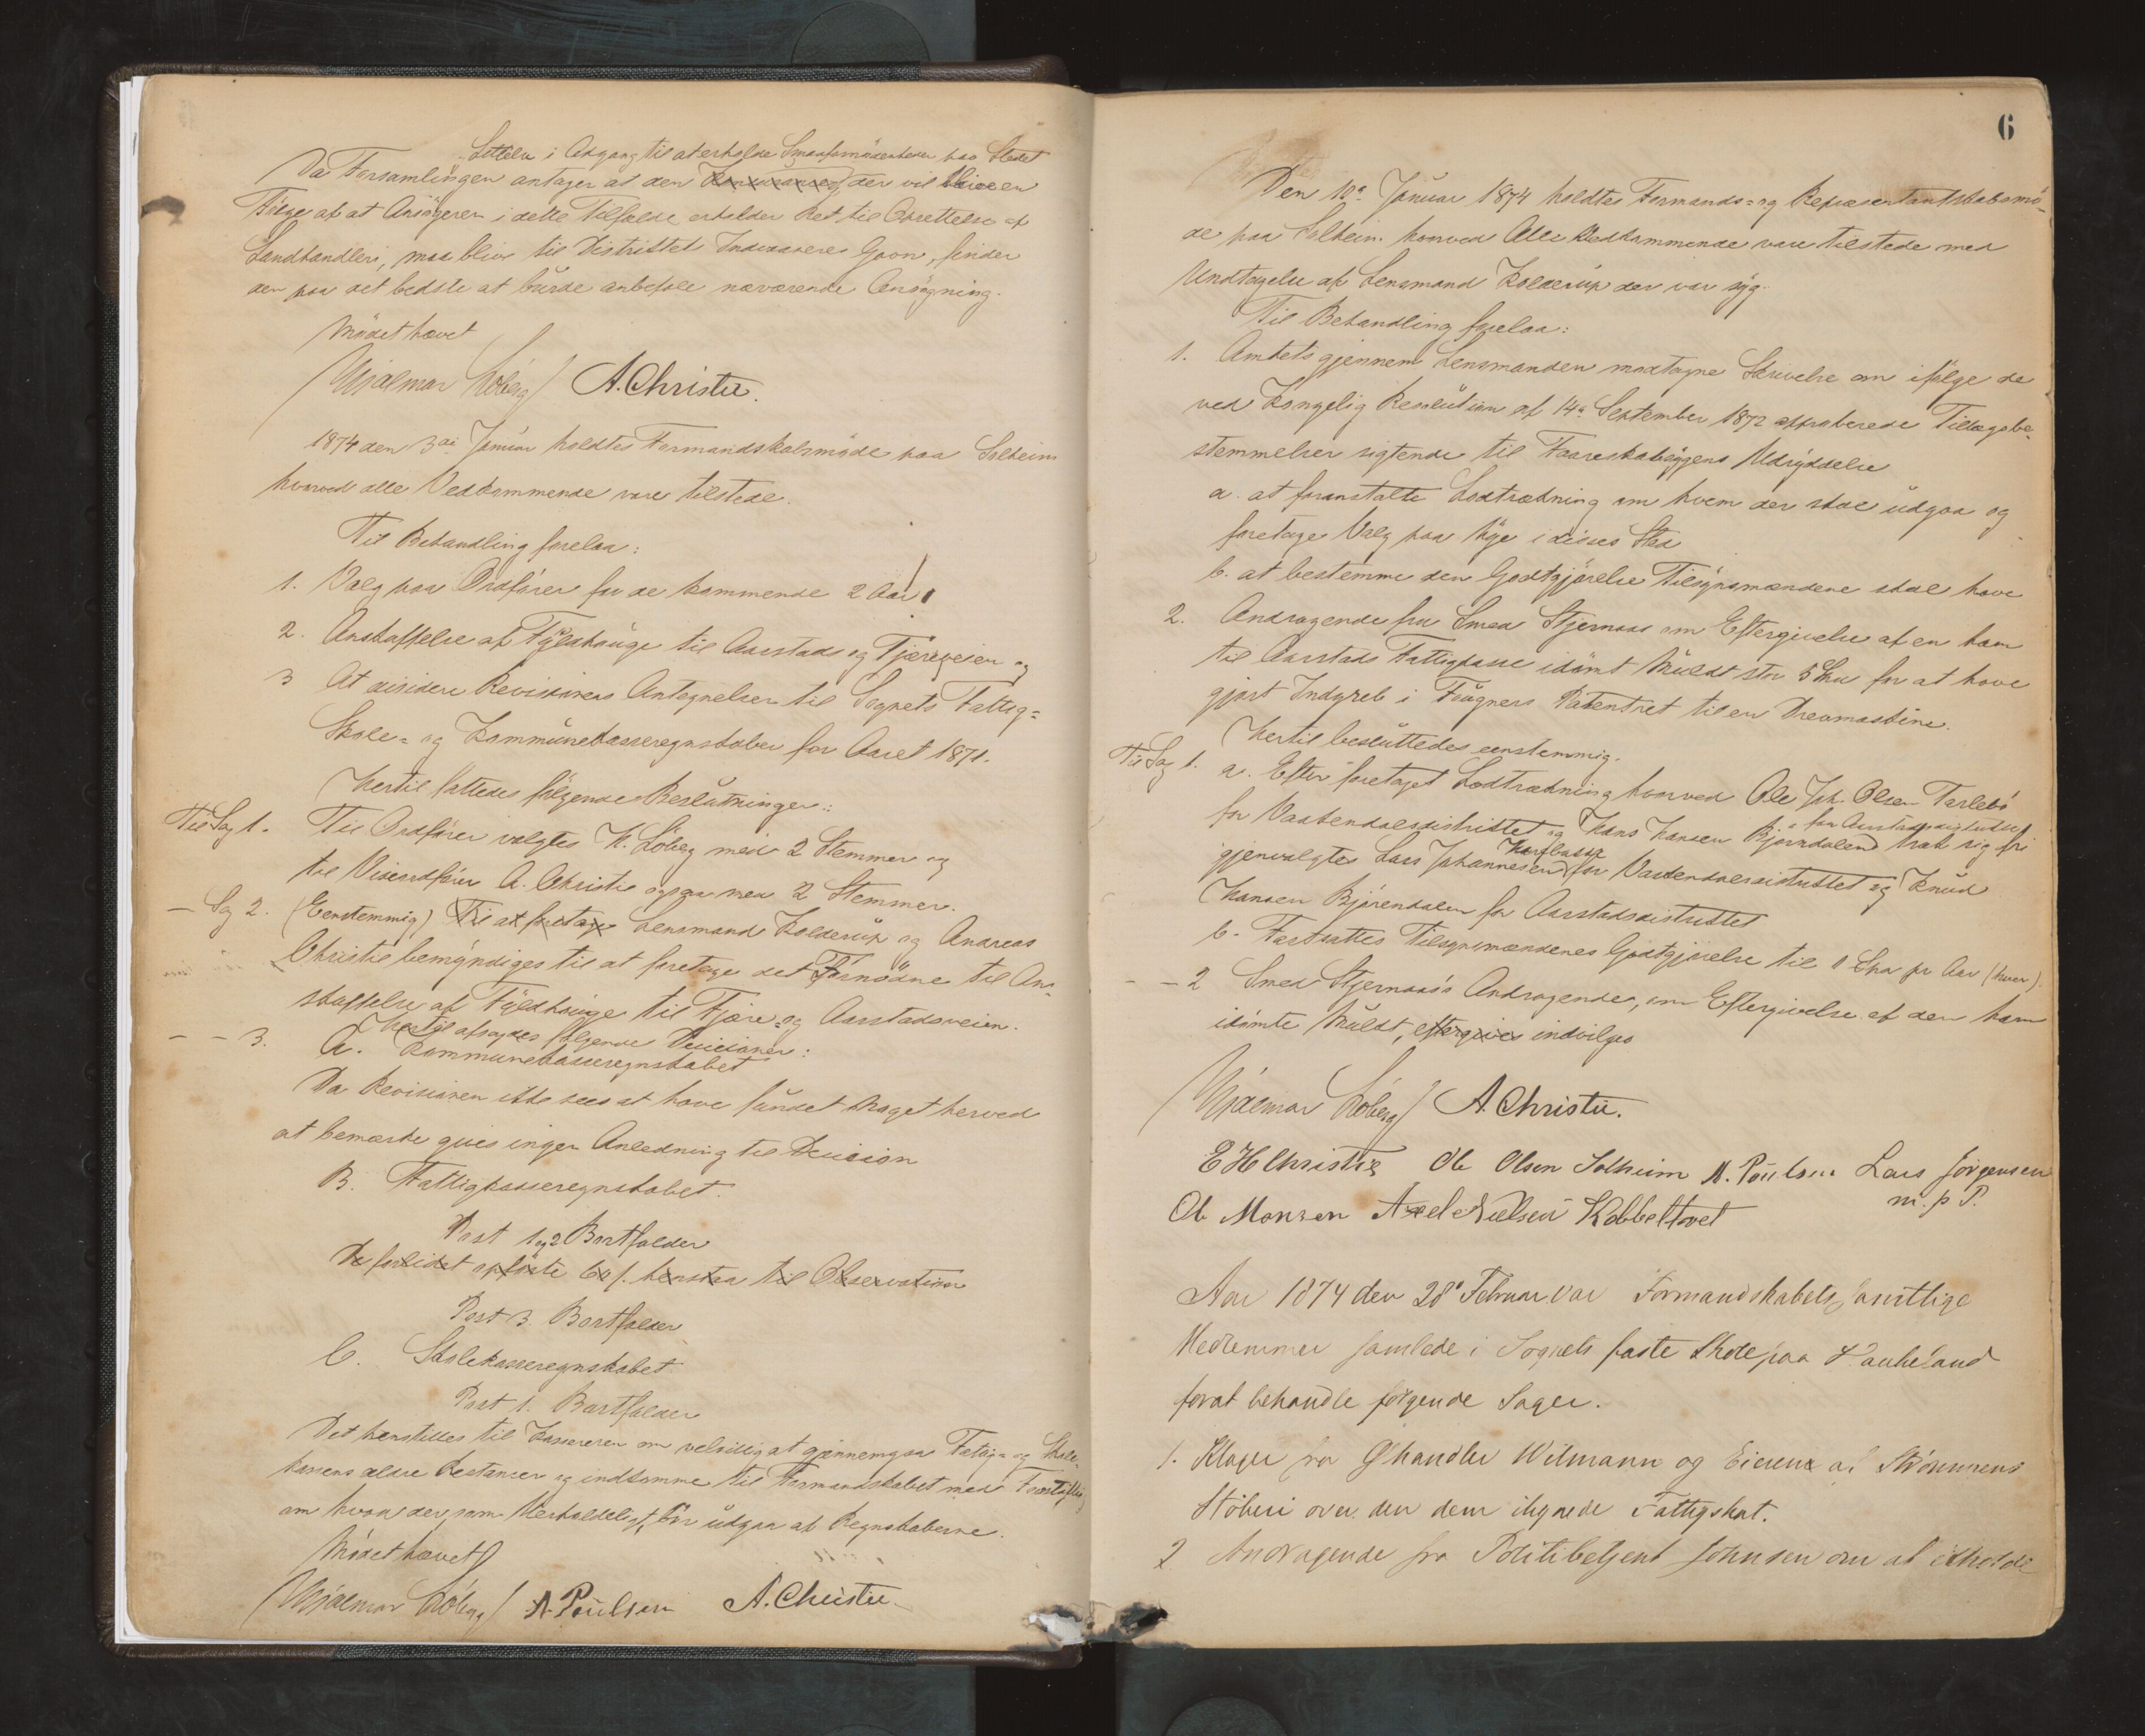 Lettelse i Adgang til at erholde Smaafornödenheder paa Stedet
Da Forsamlingen antager at den Konkurance der vil blive en
Fölge af at Ansögeren i dette Tilfælde erholder Ret til Oprettelse af
Landhandleri, maa blive til Distriktets Indvaanere Gavn, finder
den paa det bedste at burde anbefale nærværende Ansögning.
Mödet hævet
Hjalmar Löberg / A. Christie.
1874 den 3die Januar holdtes Formandskabsmöde paa Solheim
hvorved alle Vedkommende vare tilstede.
Til Behandling forelaa:
1. Valg paa Ordförer for de kommende 2 Aar
2. Anskaffelse af Fyldhauge til Aarstads og Fjæreveien og
3 At decidere Revisionens Antegnelser til Sognets Fattig=
Skole= og Kommunekasseregnskaber for Aaret 1871.
Hertil fattedes fölgende Beslutninger:
Til Sag 1. Til Ordförer valgtes H. Löberg med 2 Stemmer og
til Viceordförer A. Christie ogsaa med 2 Stemmer.
— Sag 2. (Eenstemmig) Til at foretage Lensmand Kolderup og Andreas
Christie bemyndiges til at foretage det Fornödne til An=
skaffelse af Fyldhauge til Fjære= og Aarstadsveien.
Hertil afsagdes fölgende Decisioner:
— — 3. A. Kommunekasseregnskabet
Da Revisionen ikke sees at have fundet Noget herved
at bemærke gives ingen Anledning til Decision
B. Fattigkasseregnskabet.
Post 1 og 2 Bortfalder
De forlidet opförte 60 f. henstaa til Observation
Post 3. Bortfalder
C. Skolekasseregnskabet.
Post 1. Bortfalder
Det henstilles til Kassereren om velvilligst at gjennemgaa Fattig= og Skole-
kassens ældre Restancer og indkomme til Formandskabet med Forslag
om hvad der, som Uerholdeligt, bör udgaa af Regnskaberne.
Mödet hævet
Hjalmar Löberg / A. Poulsen A. Christie
6
Den 10de Januar 1874 holdtes Formands= og Repræsentantskabsmö-
de paa Solheim hvorved Alle Vedkommende vare tilstede med
Undtagelse af Lensmand Kolderup der var syg.
Til Behandling forelaa:
1. Amtets gjennem Lensmanden modtagne Skrivelse om ifölge de
ved Kongelig Resolution af 14de September 1872 approberede Tillægsbe=
stemmelser sigtende til Faareskabsygens Udryddelse
a. at foranstalte Lodtrækning om hvem der skal udgaa og
foretage Valg paa Nye i disses Sted
b. at bestemme den Godtgjörelse Tilsynsmændene skal have
2. Andragende fra Smed Stjernaas om Eftergivelse af en ham
til Aarstads Fattigkasse idömt Muldt stor 5 Spd for at have
gjort Indgreb i Fougners Patentret til en Drevmaskine.
Hertil besluttedes eenstemmig.
Til Sag 1. a. Efter foretaget Lodtrækning hvorved Ole Joh. Olsen Tarlebö
for Vaskendalsdistriktet og Hans Hansen Björndalen for Aarstadsdistriktet trak sig fri
gjenvalgtes Lars Johannesen Haugbakke for Vaskendalsdistriktet og Knud
Hansen Björendalen for Aarstadsdistriktet
b. Fastsattes Tilsynsmændenes Godtgjörelse til 1 Spd pr Aar (hver).
— — 2 Smed Stjernaas's Andragende, om Eftergivelse af den ham
idömte Muldt, eftergives indvilges
Hjalmar Löberg / A. Christie.
E H Christie Ole Olsen Solheim A. Poulsen Lars Jörgensen
m. p P.
Ole Monsen Axel Nielsen Kobbeltvet
Aar 1874 den 28de Februar var Formandskabets samtlige
Medlemmer samlede i Sognets faste Skole paa Haukeland
forat behandle fölgende Sager.
1. Klager fra Ghandler Wilmann og Eierne af Strömmens
Stöberi over den dem ilignede Fattigskat.
2 Andragende fra Politibetjent Johnsen om at erholde